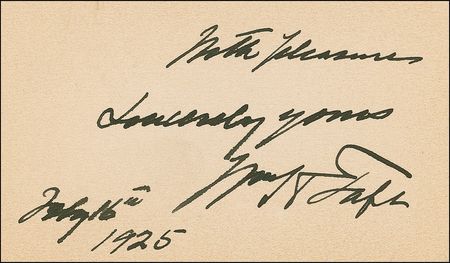 With pleasure
Sincerely yours
Wm H Taft
July 16th
1925